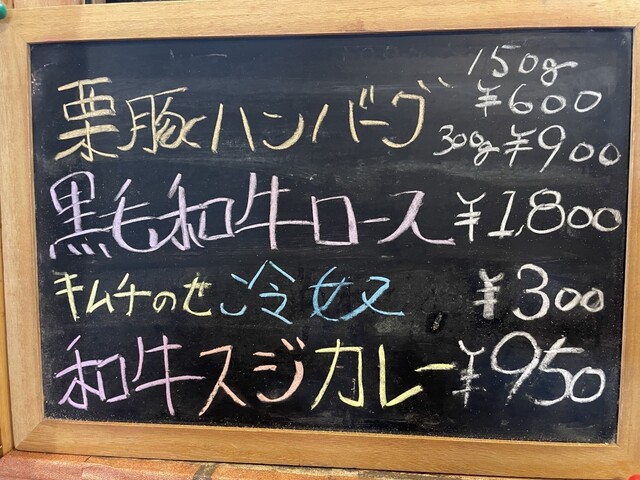 栗豚ハンバーグ 150g ¥600
300g ¥900
黒毛和牛ロース ¥1,800
キムチのせ冷奴 ¥300
和牛スジカレー ¥950